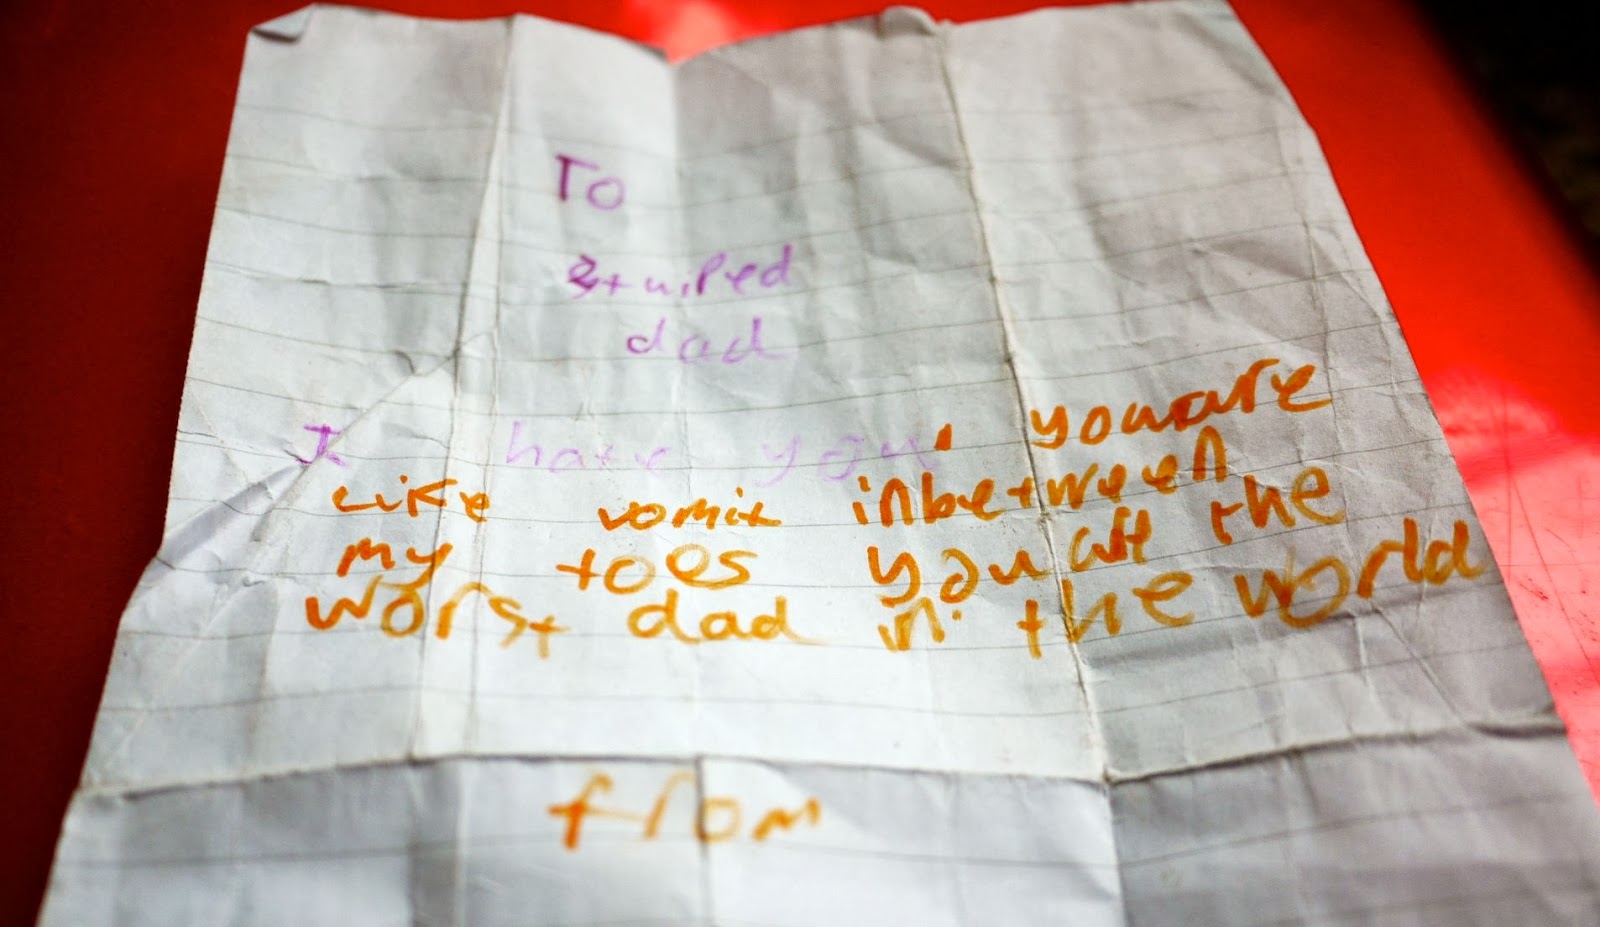 To
stuiped
dad
I hate you, youare
Like vomit inbetween
my toes you are the
worst dad in the world
from